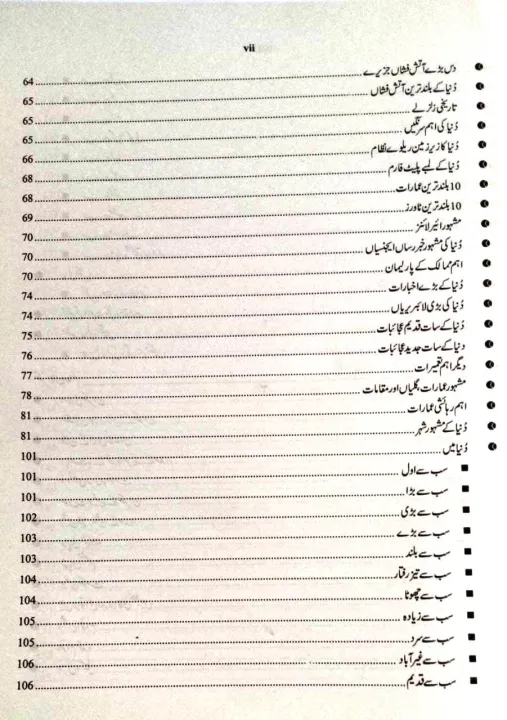 vii
دس بڑے آتش فشاں جزیرے ........ 64
دُنیا کے بلند ترین آتش فشاں ........ 65
تاریخی زلزلے ........ 65
دُنیا کی اہم سرنگیں ........ 65
دُنیا کا زیر زمین ریلوے نظام ........ 66
دُنیا کے لمبے پلیٹ فارم ........ 68
10 بلند ترین عمارات ........ 68
10 بلند ترین ٹاورز ........ 69
مشہور ائیر لائنز ........ 70
دُنیا کی مشہور خبر رساں ایجنسیاں ........ 70
اہم ممالک کے پارلیمان ........ 70
دُنیا کے بڑے اخبارات ........ 74
دُنیا کی بڑی لائبریریاں ........ 74
دُنیا کے سات قدیم عجائبات ........ 75
دنیا کے سات جدید عجائبات ........ 76
دیگر اہم تعمیرات ........ 77
مشہور عمارات، گلیاں اور مقامات ........ 78
اہم رہائشی عمارات ........ 81
دُنیا کے مشہور شہر ........ 81
دُنیا میں ........ 101
سب سے اول ........ 101
سب سے بڑا ........ 101
سب سے بڑی ........ 102
سب سے بڑے ........ 103
سب سے بلند ........ 103
سب سے تیز رفتار ........ 104
سب سے چھوٹا ........ 104
سب سے زیادہ ........ 105
سب سے سرد ........ 105
سب سے غیر آباد ........ 106
سب سے قدیم ........ 106